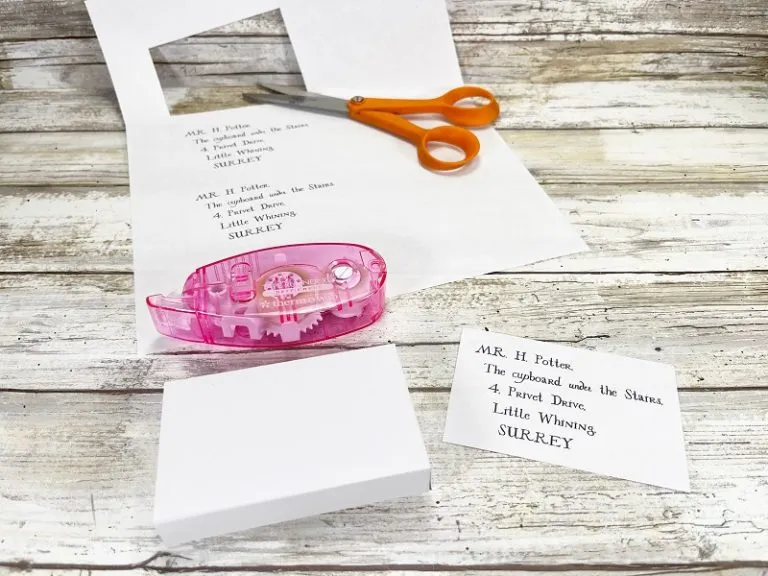 MR. H. Potter.
The cupboard under the Stairs.
4. Privet Drive.
Little Whining.
SURREY
MR. H. Potter.
The cupboard under the Stairs.
4. Privet Drive.
Little Whining.
SURREY
thermoweb
MR. H. Potter.
The cupboard under the Stairs.
4. Privet Drive.
Little Whining.
SURREY